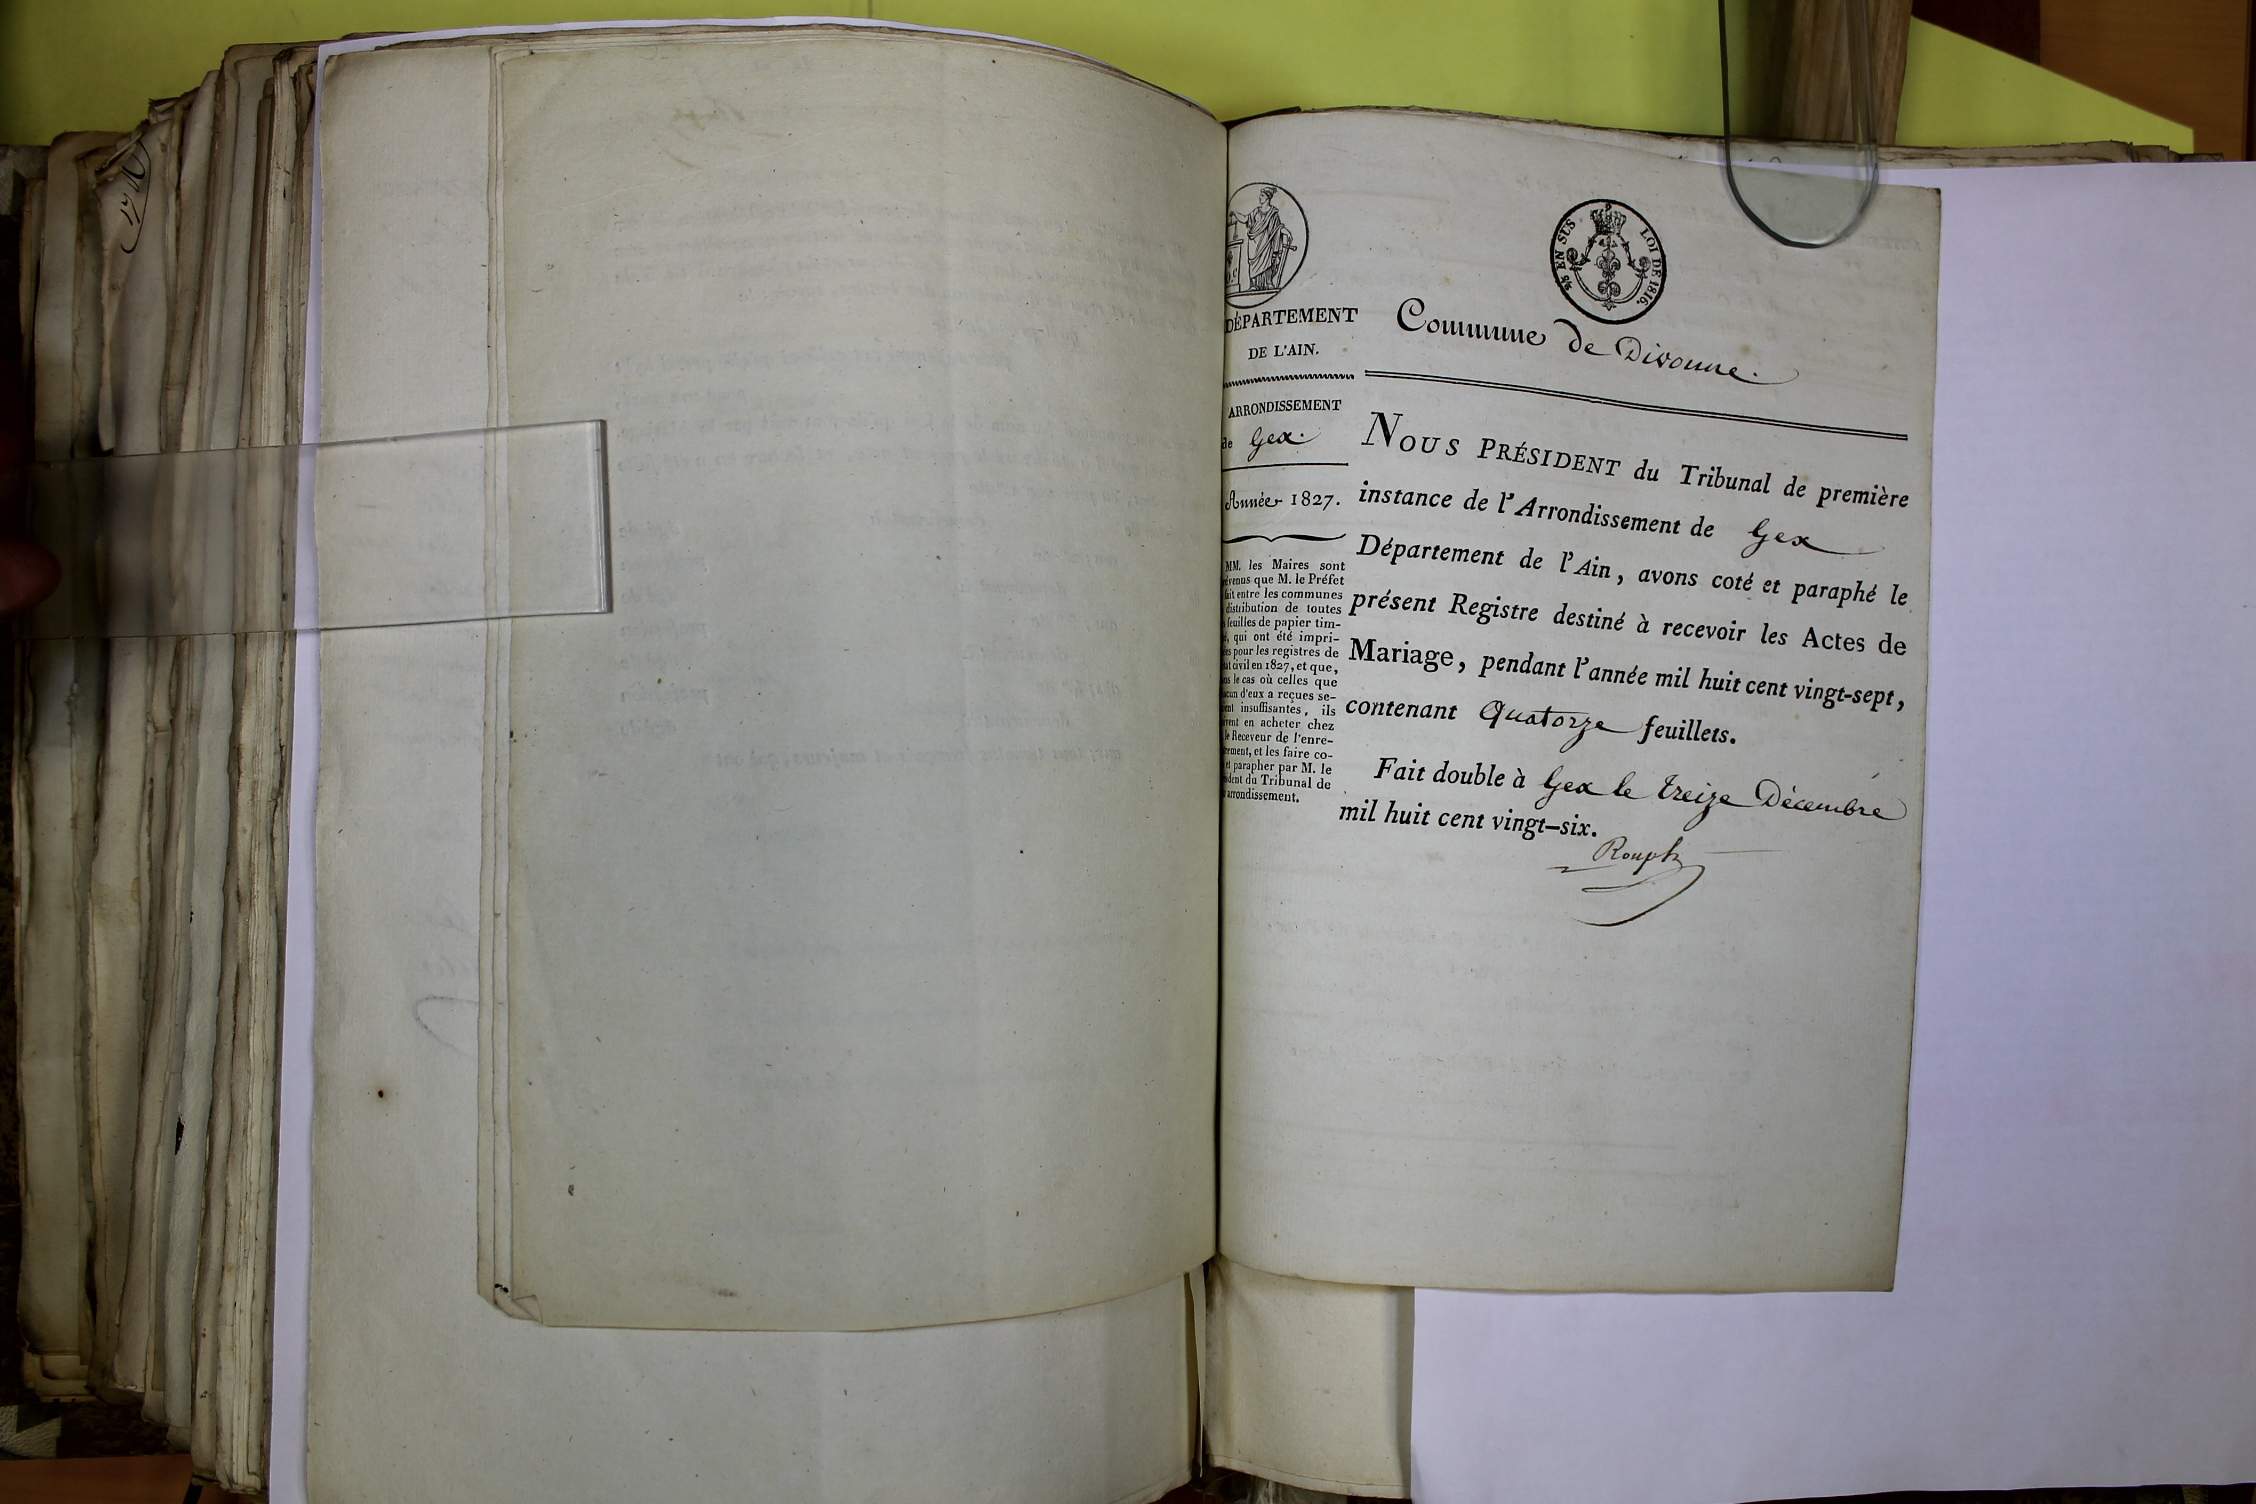 5/6 EN SUS LOI DE 1816.
DÉPARTEMENT
DE L'AIN.
ARRONDISSEMENT
de Gex.
Année 1827.
MM. les Maires sont
que M. le Préfet
fait entre les communes
distribution de toutes
feuilles de papier tim-
qui ont été impri-
pour les registres de
civil en 1827, et que,
le cas où celles que
d'eux a reçues se-
insuffisantes, ils
en acheter chez
le Receveur de l'enre-
et les faire co-
et parapher par M. le
du Tribunal de
arrondissement.
Commune de Divonne.
NOUS PRÉSIDENT du Tribunal de première
instance de l'Arrondissement de Gex
Département de l'Ain, avons coté et paraphé le
présent Registre destiné à recevoir les Actes de
Mariage, pendant l'année mil huit cent vingt-sept,
contenant Quatorze feuillets.
Fait double à Gex le treize Décembre
mil huit cent vingt-six.